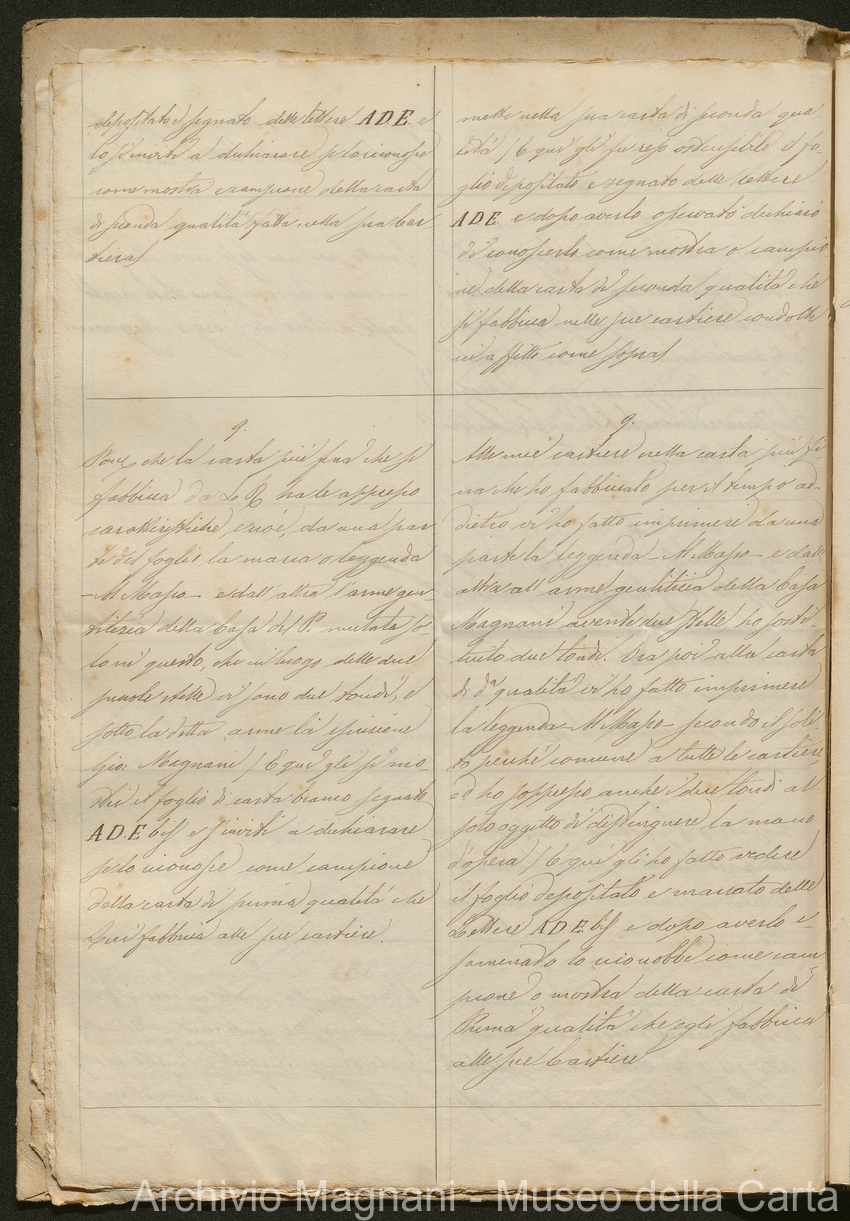 depositato e segnato delle lettere A.D.E. e
lo s'inviti a dichiarare se lo riconosce
come mostra e campione della carta
di seconda qualità fatta nella sua Car
tiera/
mette nella sua carta di seconda qua
lità / E qui gli fu reso ostensibile il fo-
glio depositato e segnato delle lettere
A.D.E. e dopo averlo osservato dichiarò
di conoscerlo come mostra o campio
ne della carta di seconda qualità che
si fabbrica nelle sue cartiere condotte
in affitto come sopra/
9.
che la carta più fina che si
fabbrica da L R. ha le appresso
caratteristiche cioè, da una par
te del foglio la marca o leggenda
- Al Masso - e dall'altra l'arme gen
tilizia della Casa del P. mutata so
lo in questo, che in luogo delle due
piccole stelle vi sono due tondi, e
sotto la detta arme la iscrizione
Gio: Magnani / E qui gli si mo-
stri il foglio di carta bianco segnato
A.D.E. bis e s'inviti a dichiarare
se lo riconosce come campione
della carta di prima qualità che
si fabbrica alle sue cartiere.
9.
Alle mie cartiere nella carta più fi
na che ho fabbricato per il tempo ad-
dietro vi ho fatto imprimere da una
parte la leggenda - Al Masso - e dall'
altra all'arme gentilizia della Casa
Magnani avente due stelle ho sosti
tuito due tondi. Ora poi alla carta
di da. qualità vi ho fatto imprimere
la leggenda - Al Masso - secondo il soli
to perchè comune a tutte le cartiere,
ed ho soppresso anche i due tondi al
solo oggetto di distinguere la mano
d'opera / E qui gli ho fatto vedere
il foglio depositato e marcato delle
Lettere A.D.E. bis e dopo averlo e-
samenato lo riconobbe come cam
pione o mostra della carta di
Prima qualità che egli fabbrica
alle sue Cartiere
Archivio Magnani - Museo della Carta